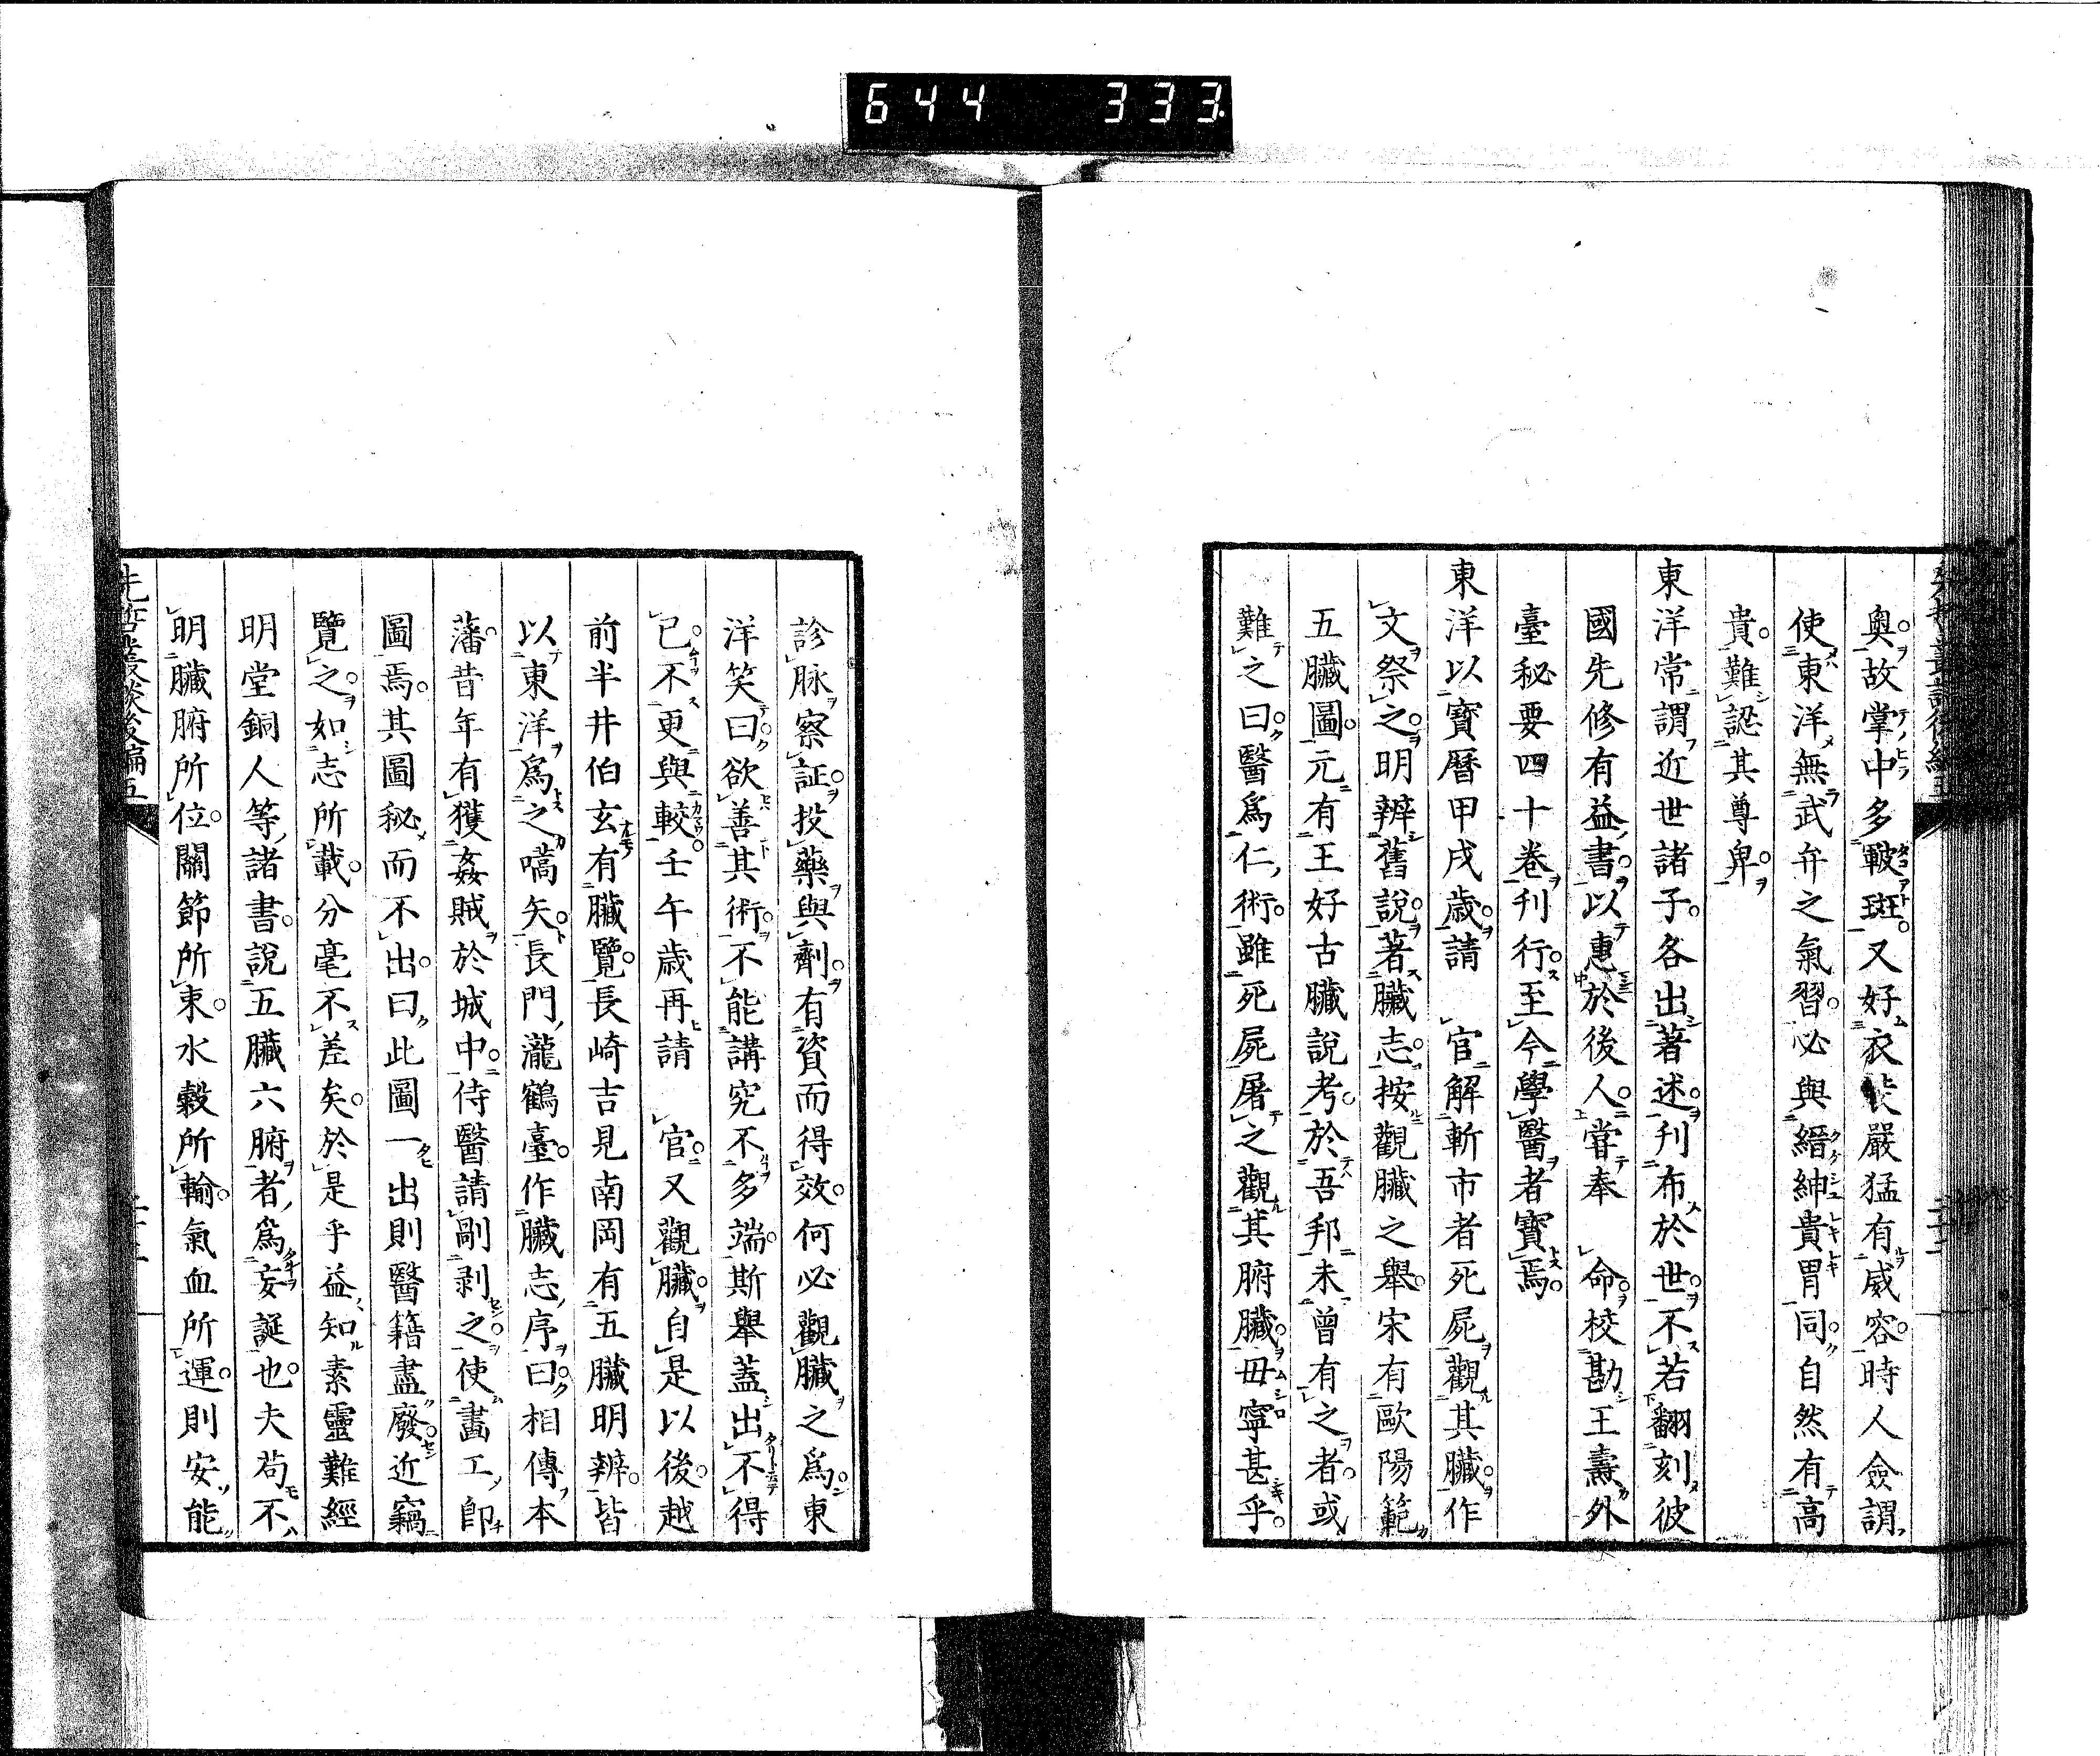 644 333.
奥故掌中多皸斑又好衣裝嚴猛有威容時人僉謂
使東洋無武弁之氣習必與縉紳貴胃同自然有高
貴難認其尊卑
東洋常謂近世諸子各出著述刊布於世不若翻刻彼
國先修有益書以惠於後人甞奉 命校勘王燾外
臺秘要四十卷刊行至今學醫者寶焉
東洋以寶曆甲戌歲請 官解斬市者死屍觀其臟作
文祭之明辨舊說著臟志按觀臟之舉宋有歐陽範
五臟圖元有王好古臟說考於吾邦未曾有之者或
難之曰醫爲仁術雖死屍屠之觀其腑臟毋寧甚乎
診脉察証投藥與劑有資而得效何必觀臟之爲東
洋笑曰欲善其術不能講究不多端斯舉蓋出不得
已不更與較壬午歲再請 官又觀臟自是以後越
前半井伯玄有臟覽長崎吉見南岡有五臟明辨皆
以東洋爲之嚆矢長門瀧鶴臺作臟志序曰相傳本
藩昔年有獲姦賊於城中侍醫請剮剥之使畵工卽
圖焉其圖秘而不出曰此圖一出則醫籍盡廢近竊
覽之如志所載分毫不差矣於是乎益知素靈難經
明堂銅人等諸書說五臟六腑者爲妄誕也夫苟不
明臟腑所位關節所束水穀所輸氣血所運則安能
先哲叢談後編五